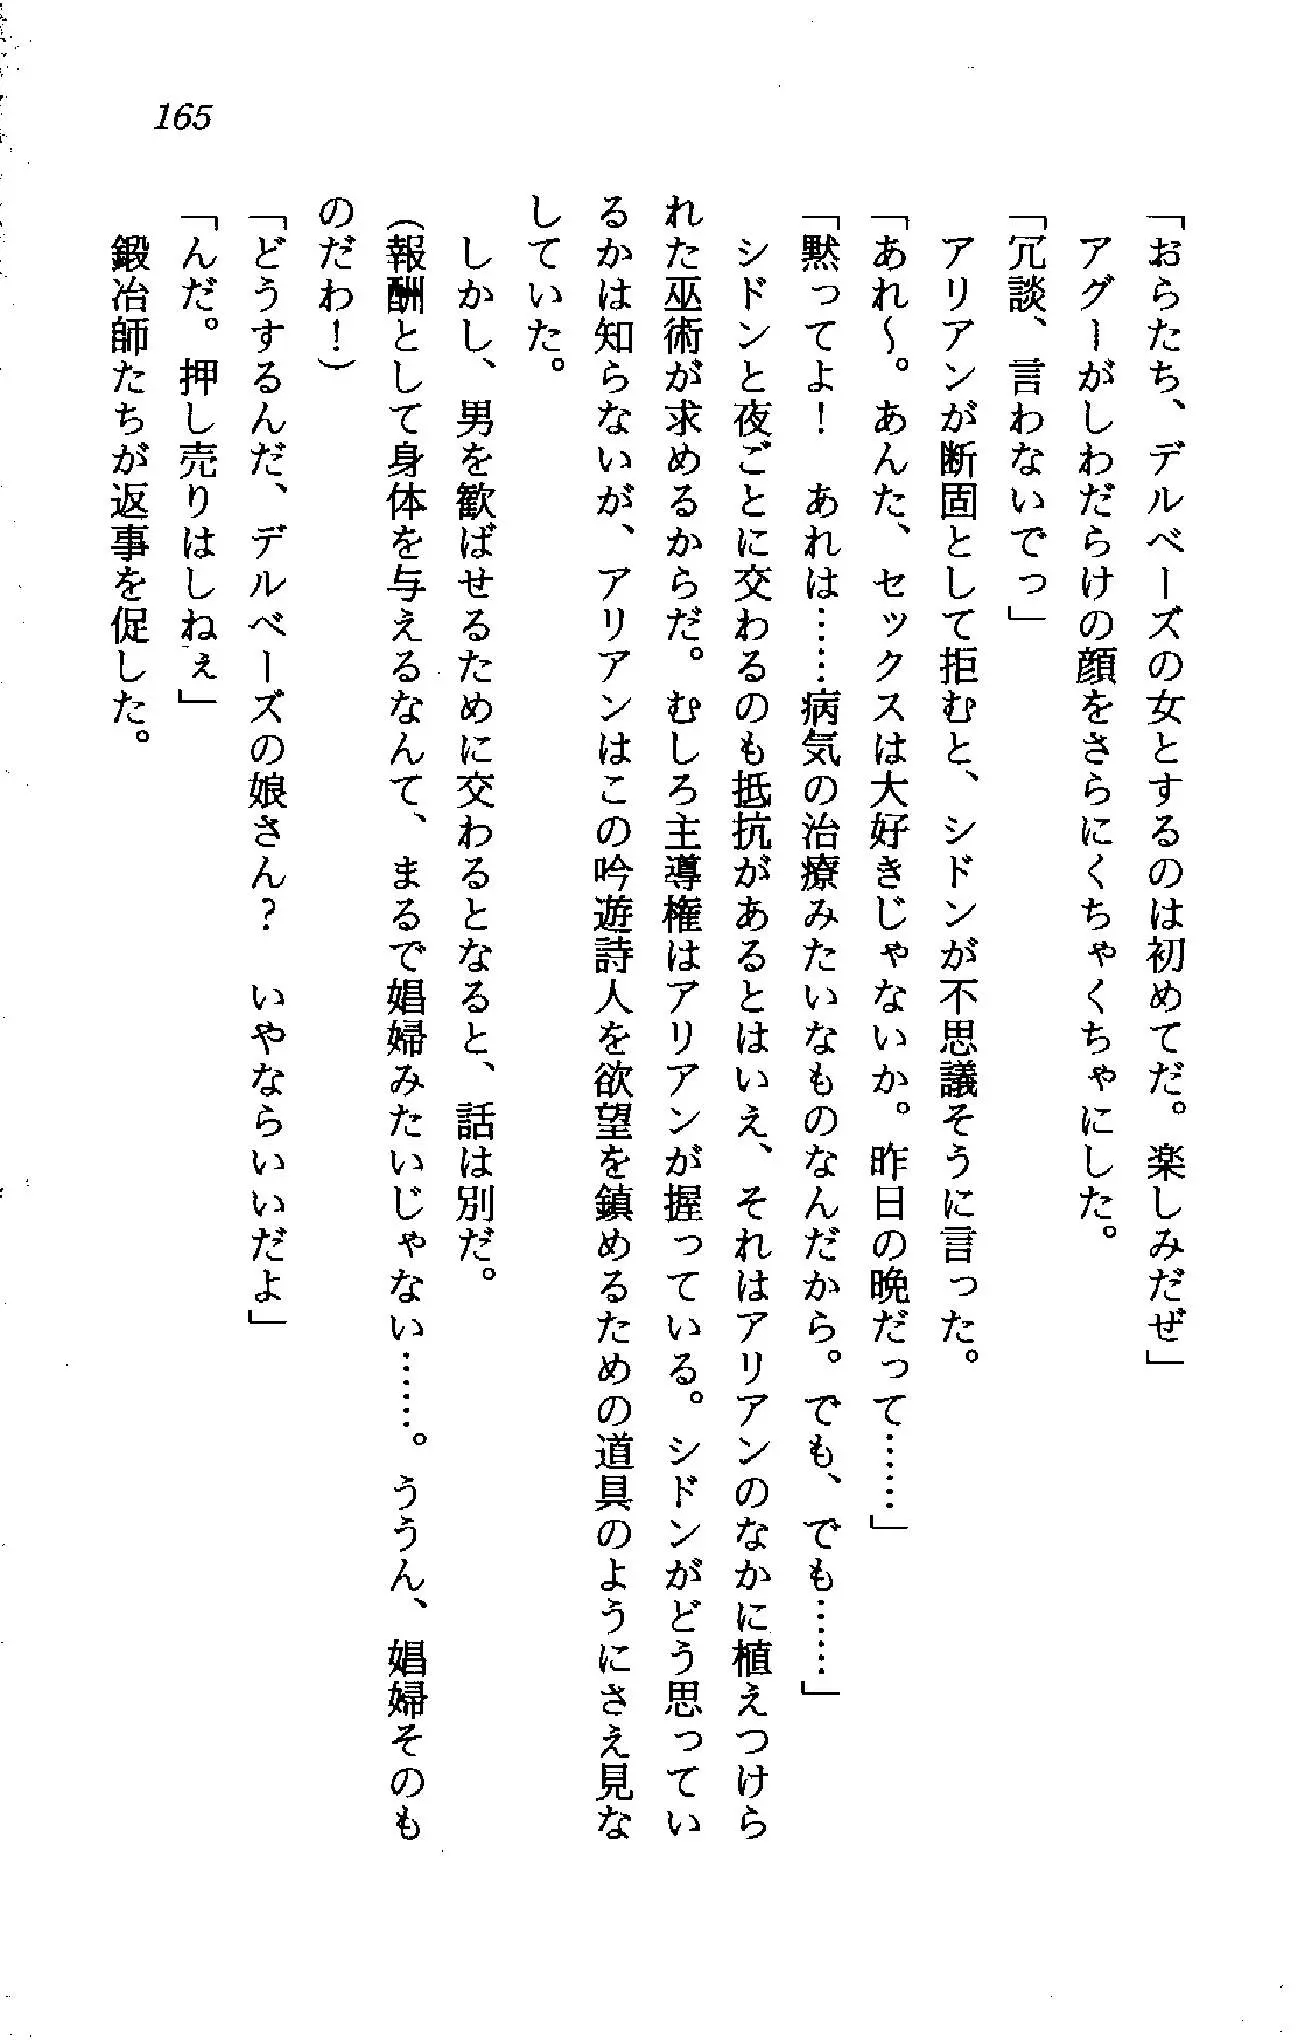 165
「おらたち、デルベーズの女とするのは初めてだ。楽しみだぜ」
アグーがしわだらけの顔をさらにくちゃくちゃにした。
「冗談、言わないでっ」
アリアンが断固として拒むと、シドンが不思議そうに言った。
「あれ～。あんた、セックスは大好きじゃないか。昨日の晩だって……」
「黙ってよ！　あれは……病気の治療みたいなものなんだから。でも、でも……」
シドンと夜ごとに交わるのも抵抗があるとはいえ、それはアリアンのなかに植えつけら
れた巫術が求めるからだ。むしろ主導権はアリアンが握っている。シドンがどう思ってい
るかは知らないが、アリアンはこの吟遊詩人を欲望を鎮めるための道具のようにさえ見な
していた。
しかし、男を歓ばせるために交わるとなると、話は別だ。
（報酬として身体を与えるなんて、まるで娼婦みたいじゃない……。ううん、娼婦そのも
のだわ！）
「どうするんだ、デルベーズの娘さん？　いやならいいだよ」
「んだ。押し売りはしねぇ」
鍛冶師たちが返事を促した。